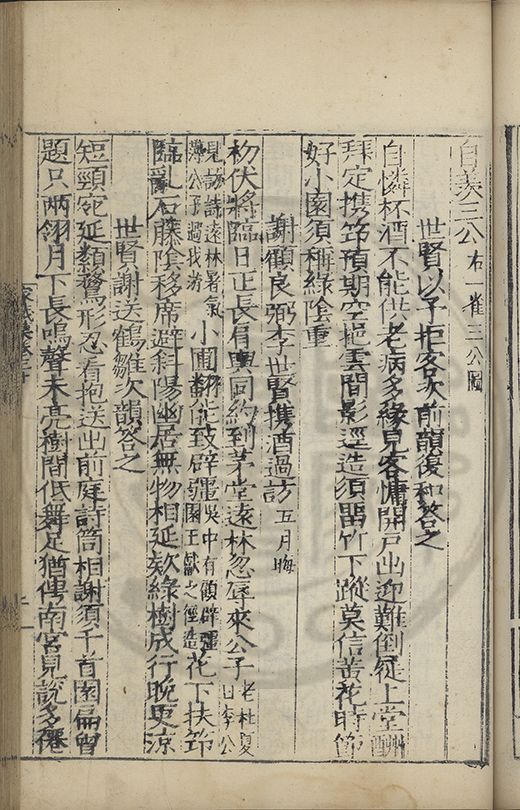 自義三公右一雀三公圖
世賢以予拒客次前韻復和答之
自憐杯酒不能供老病多緣見客慵開戶出迎難倒屣上堂酬
拜定携笻預期空挹雲間影逕造須留竹下蹤莫信苦花時節
好小園須稱綠陰重
謝顧良弼李世賢携酒過訪五月晦
初伏將臨日正長有興同約到茅堂遠林忽辱來公子老杜夏日李公
見訪詩遠林暑氣薄公子過我游小圃翻能致辟疆吳中有顧辟疆園王獻之徑造花下扶笻
臨亂石藤陰移席避斜陽幽居無物相延欵綠樹成行晚更涼
世賢謝送鶴雛次韻答之
短頸宛延類鶩形忍看抱送出前庭詩筒相謝須千首園扁曾
題只兩翎月下長鳴聲未亮樹間低舞足猶伶南宮見說多僊